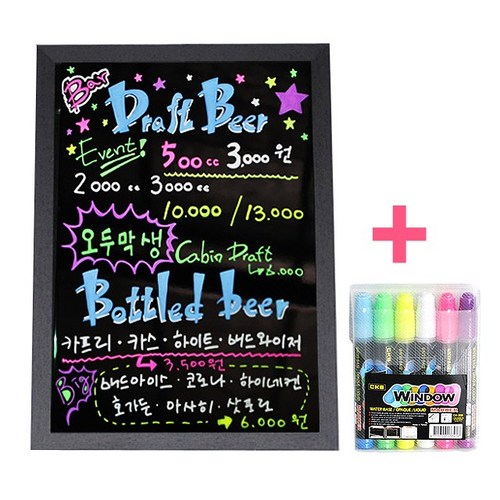 Bar
Draft Beer
Event! 500cc 3,000 원
2000 cc 3000cc
10.000 / 13.000
오두막생 Cabin Draft
↳6.000
Bottled beer
카프리 · 카스 · 하이트 · 버드와이저
→ 3,500원
버드아이스 · 코로나 · 하이네켄
호가든 · 아사히 · 삿포로
→ 6.000 원
+
CKB
WINDOW
WATER BASE / OPAQUE / LIQUID
MARKER